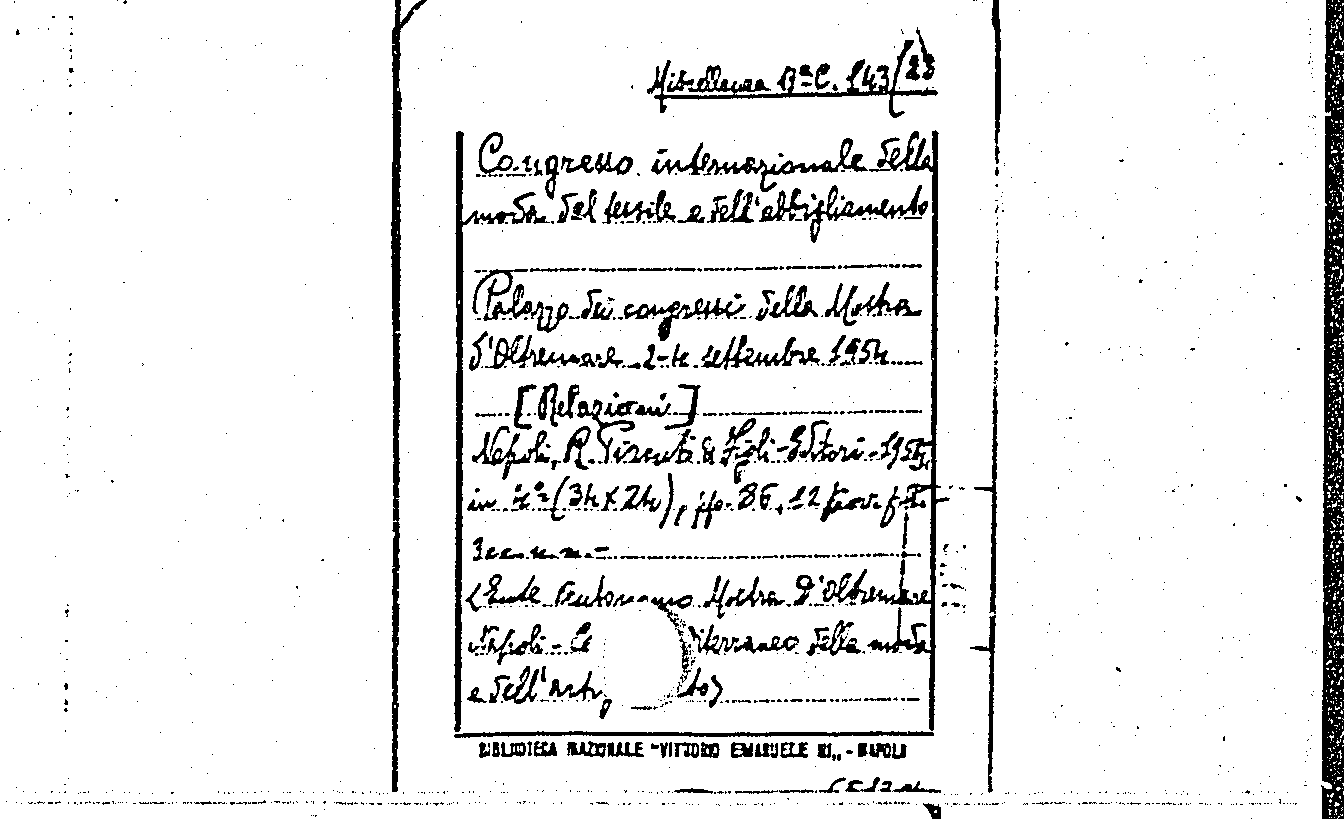 Miscellanea Bª C. 143/23
Congresso internazionale della
moda del tessile e dell'abbigliamento
Palazzo dei congressi della Mostra
d'Oltremare 2-4 settembre 1954
[Relazioni]
Napoli, R. Pironti & Figli-Editori-195
in 4º (34 x 24), pp. 86, 12 f.t.
s.n.-
<Ente Autonomo Mostra D'Oltremare
Napoli - Ce diterraneo della moda
e dell'art to>
BIBLIOTECA NAZIONALE "VITTORIO EMANUELE III" - NAPOLI